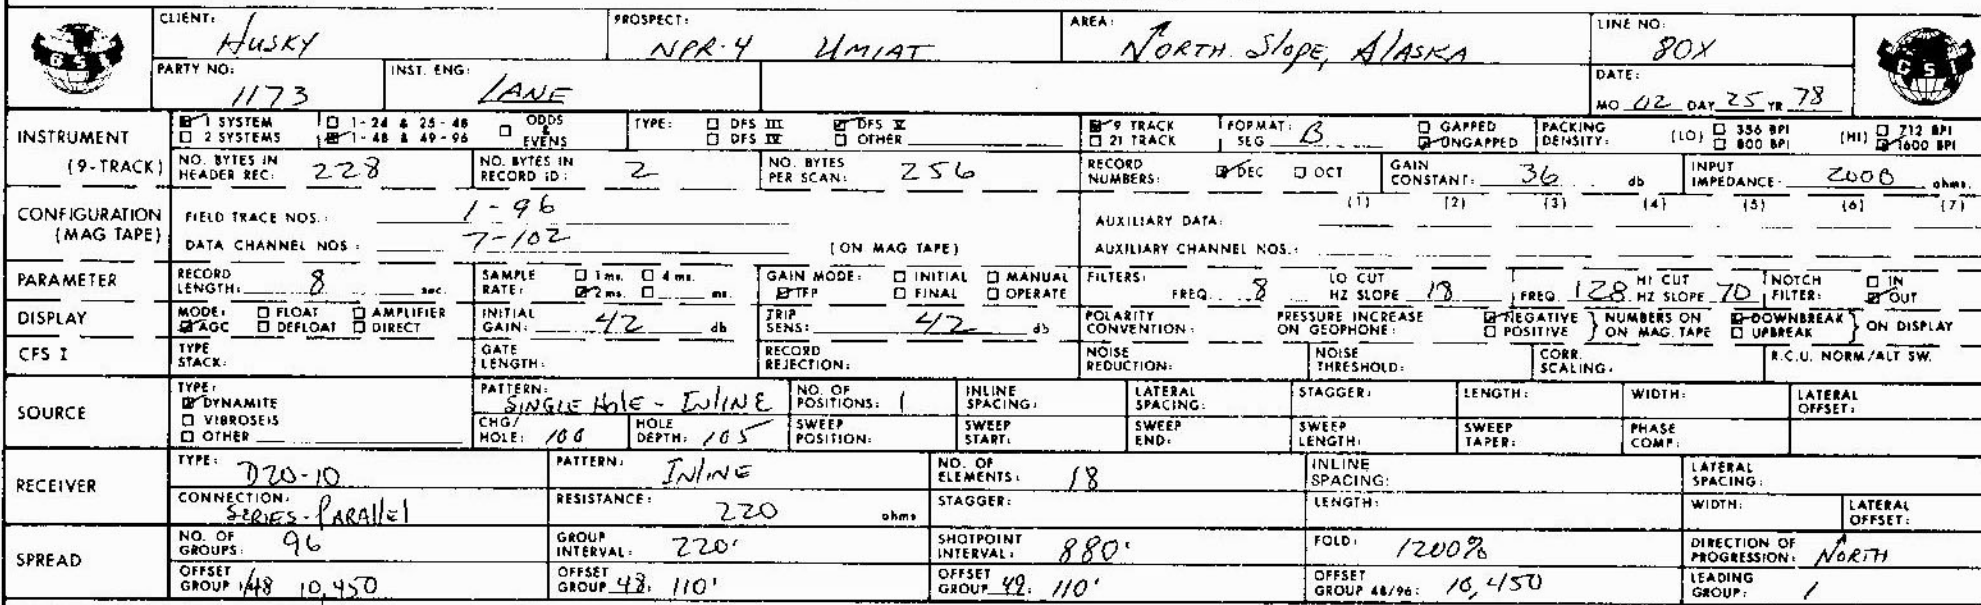 CLIENT: HUSKY PROSPECT: NPR-4 UMIAT AREA: NORTH Slope, AlASKA LINE NO: 80X
GSI GSI
PARTY NO: 1173 INST. ENG: LANE DATE: MO 02 DAY 25 YR 78
INSTRUMENT (9-TRACK) ☑ 1 SYSTEM ☐ 1-24 & 25-48 ☐ ODDS & EVENS TYPE: ☐ DFS III ☑ DFS V ☑ 9 TRACK FORMAT: SEG B ☐ GAPPED PACKING DENSITY: (LO) ☐ 356 BPI (HI) ☐ 712 BPI
☐ 2 SYSTEMS ☑ 1-48 & 49-96 ☐ DFS IV ☐ OTHER ☐ 21 TRACK ☑ UNGAPPED ☐ 800 BPI ☑ 1600 BPI
NO. BYTES IN HEADER REC: 228 NO. BYTES IN RECORD ID: 2 NO. BYTES PER SCAN: 256 RECORD NUMBERS: ☑ DEC ☐ OCT GAIN CONSTANT: 36 db INPUT IMPEDANCE: 2000 ohms.
CONFIGURATION (MAG TAPE) FIELD TRACE NOS.: 1-96 AUXILIARY DATA: (1) (2) (3) (4) (5) (6) (7)
DATA CHANNEL NOS: 7-102 (ON MAG TAPE) AUXILIARY CHANNEL NOS.:
PARAMETER RECORD LENGTH: 8 sec. SAMPLE RATE: ☐ 1 ms. ☐ 4 ms. ☑ 2 ms. ☐ ms. GAIN MODE: ☐ INITIAL ☐ MANUAL ☑ IFP ☐ FINAL ☐ OPERATE FILTERS: FREQ. 8 LO CUT HZ SLOPE 18 FREQ. 128 HI CUT HZ SLOPE 70 NOTCH FILTER: ☐ IN ☑ OUT
DISPLAY MODE: ☐ FLOAT ☐ AMPLIFIER ☑ AGC ☐ DEFLOAT ☐ DIRECT INITIAL GAIN: 42 db TRIP SENS: 42 db POLARITY CONVENTION: PRESSURE INCREASE ON GEOPHONE: ☑ NEGATIVE ☐ POSITIVE } NUMBERS ON MAG. TAPE ☑ DOWNBREAK ☐ UPBREAK } ON DISPLAY
CFS I TYPE STACK: GATE LENGTH: RECORD REJECTION: NOISE REDUCTION: NOISE THRESHOLD: CORR. SCALING: R.C.U. NORM/ALT SW.
SOURCE TYPE: ☑ DYNAMITE ☐ VIBROSEIS ☐ OTHER PATTERN: SINGLE HolE - INlINE NO. OF POSITIONS: 1 INLINE SPACING: LATERAL SPACING: STAGGER: LENGTH: WIDTH: LATERAL OFFSET:
CHG/HOLE: 100 HOLE DEPTH: 105 SWEEP POSITION: SWEEP START: SWEEP END: SWEEP LENGTH: SWEEP TAPER: PHASE COMP:
RECEIVER TYPE: D20-10 PATTERN: INlINE NO. OF ELEMENTS: 18 INLINE SPACING: LATERAL SPACING:
CONNECTION: SERIES-PARAllEl RESISTANCE: 220 ohms STAGGER: LENGTH: WIDTH: LATERAL OFFSET:
SPREAD NO. OF GROUPS: 96 GROUP INTERVAL: 220' SHOTPOINT INTERVAL: 880' FOLD: 1200% DIRECTION OF PROGRESSION: NORTH
OFFSET GROUP 1/48 10,450 OFFSET GROUP 48: 110' OFFSET GROUP 49: 110' OFFSET GROUP 48/96: 10,450 LEADING GROUP: 1